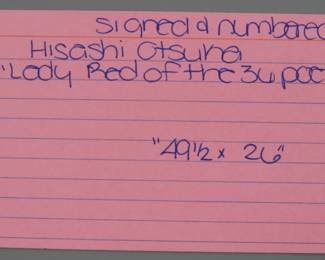 signed & numbered
Hisashi Otsuka
"Lady Red of the 36 poe
"49 1/2 x 26"